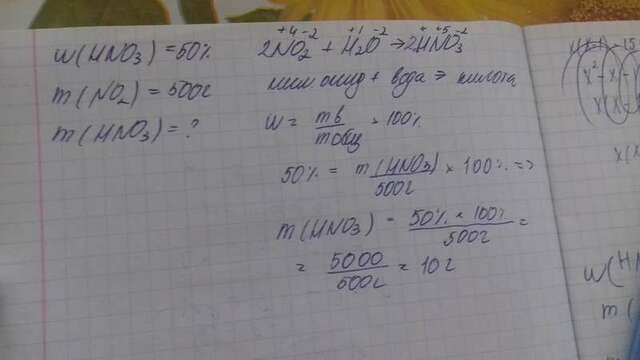 w(HNO₃) = 50%
m(NO₂) = 500г
m(HNO₃) = ?
+4 -2 +1 -2 + +5 -2
2NO₂ + H₂O → 2HNO₃
оксид + вода → кислота
w = mв/mобщ × 100%
50% = m(HNO₃)/500г × 100% =>
m(HNO₃) = 50% × 100%/500г =
= 5000/500г = 10г
x² - x
x(x
w(HN
m(